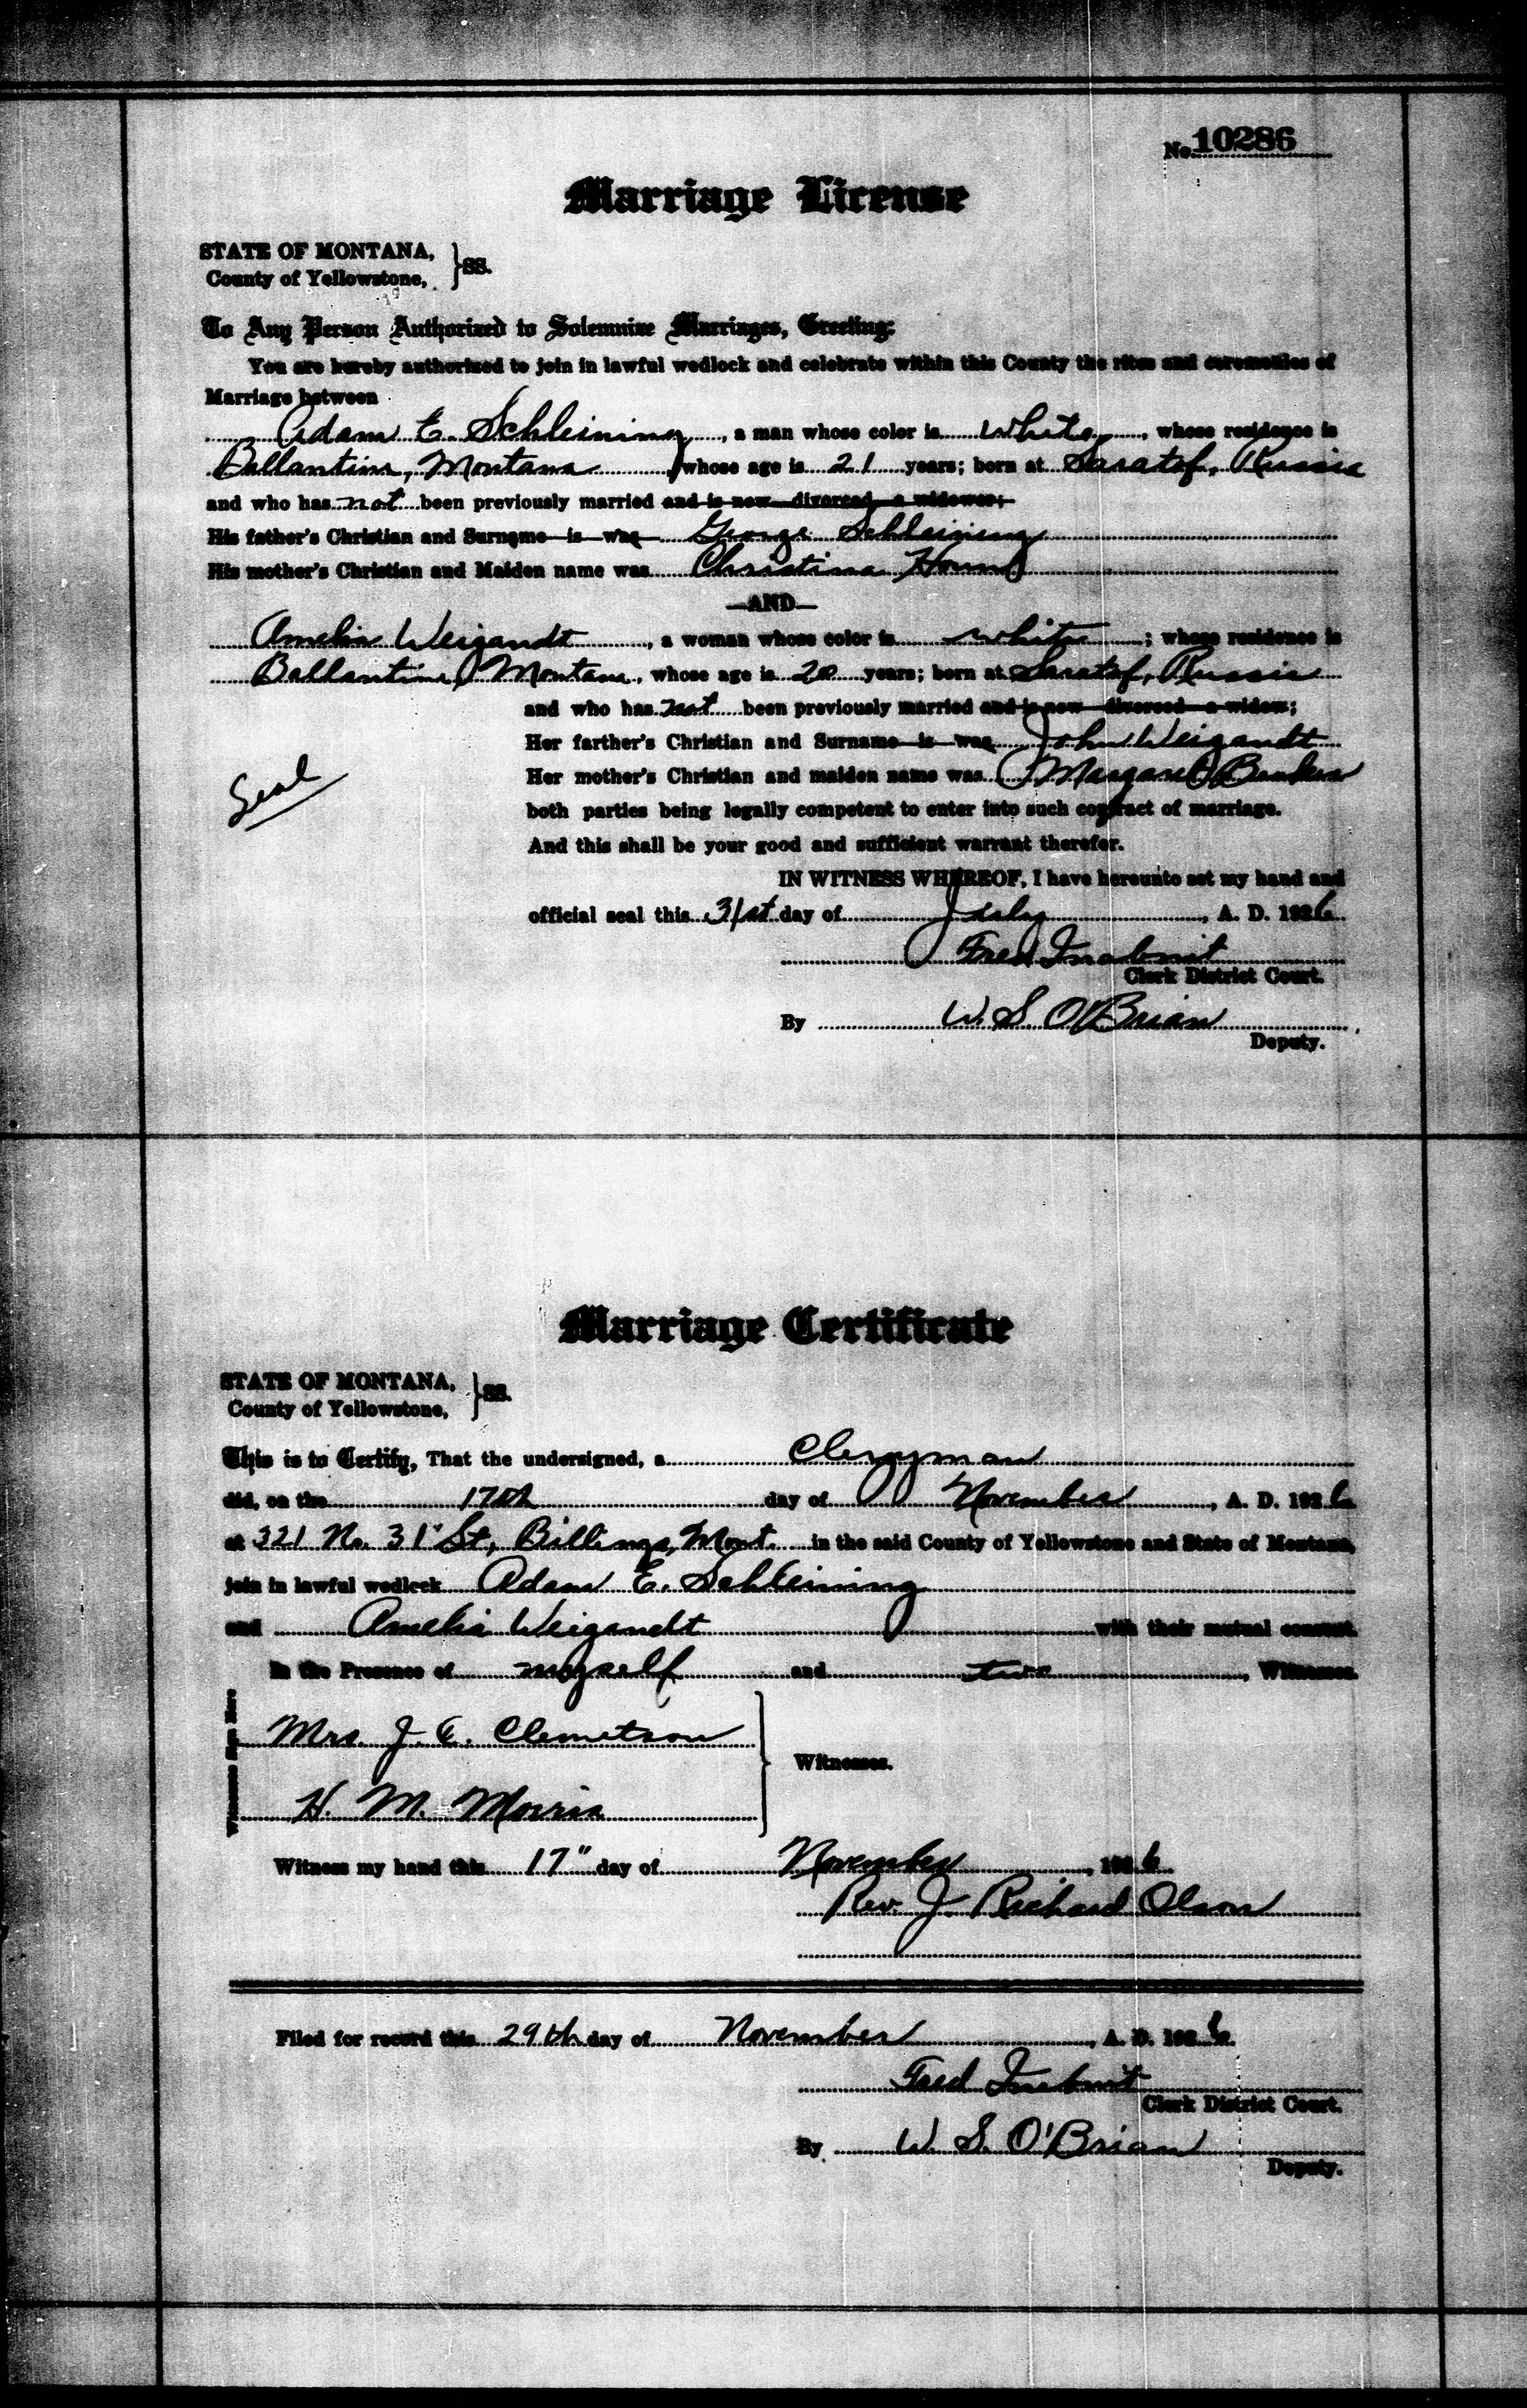 No. 10286
Marriage License
STATE OF MONTANA,
County of Yellowstone, } SS.
To Any Person Authorized to Solemnize Marriages, Greeting:
You are hereby authorized to join in lawful wedlock and celebrate within this County the rites and ceremonies of
Marriage between
Adam E. Schleining, a man whose color is white, whose residence is
Ballantine, Montana whose age is 21 years; born at Saratof, Russia
and who has not been previously married and is now divorced a widower;
His father's Christian and Surname is was George Schleining
His mother's Christian and Maiden name was Christina
—AND—
Amelia Weigandt, a woman whose color is white; whose residence is
Ballantine, Montana, whose age is 20 years; born at Saratof, Russia
and who has not been previously married and is now divorced a widow;
Her farther's Christian and Surname is was John Weigandt
Her mother's Christian and maiden name was Margaret
Seal
both parties being legally competent to enter into such contract of marriage.
And this shall be your good and sufficient warrant therefor.
IN WITNESS WHEREOF, I have hereunto set my hand and
official seal this 31st day of July, A. D. 1926
Fred Inabnit
Clerk District Court.
By W. S. O'Brian
Deputy.
Marriage Certificate
STATE OF MONTANA,
County of Yellowstone, } SS.
This is to Certify, That the undersigned, a Clergyman
did, on the 17th day of November, A. D. 1926
at 321 No. 31 St., Billings, Mont. in the said County of Yellowstone and State of Montana,
join in lawful wedlock Adam E. Schleining
and Amelia Weigandt with their mutual consent.
In the Presence of myself and two, Witnesses.
Witnesses Sign Here
Mrs. J. E. Clemetson
Witnesses.
H. M. Morris
Witness my hand this 17" day of November, 1926
Rev. J. Richard Olson
Filed for record this 29th day of November, A. D. 1926
Fred Inabnit
Clerk District Court.
By W. S. O'Brian
Deputy.